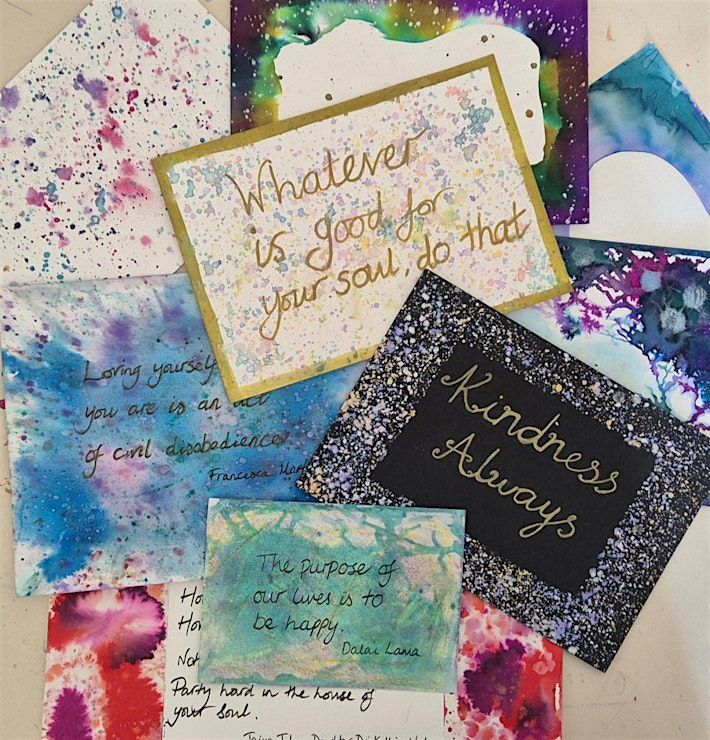 Whatever
is good for
your soul, do that
Loving yourself
you are is an act
of civil disobedience
Francisca
Kindness
Always
The purpose of
our lives is to
be happy.
Dalai Lama
Party hard in the house of
your soul.